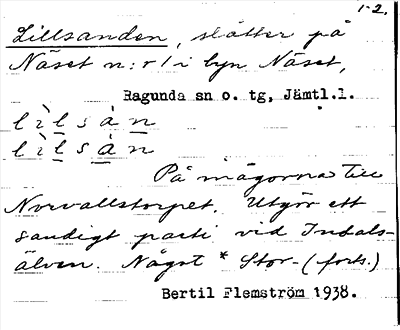 1-2.
Lillsanden, slåtter på
Näset n:r 1 i byn Näset,
Ragunda sn o. tg, Jämtl.l.
l ì l s à n
l ì l s à n
På mågorna till
Norvallstorpet. Utgör ett
sandigt parti vid Indals-
älven. Något * Stor- (forts.)
Bertil Flemström 1938.